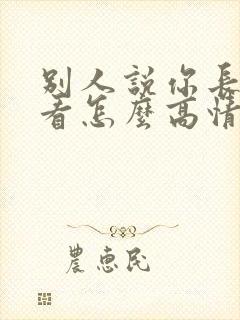 别人说你长
看怎麼高情
農惠民